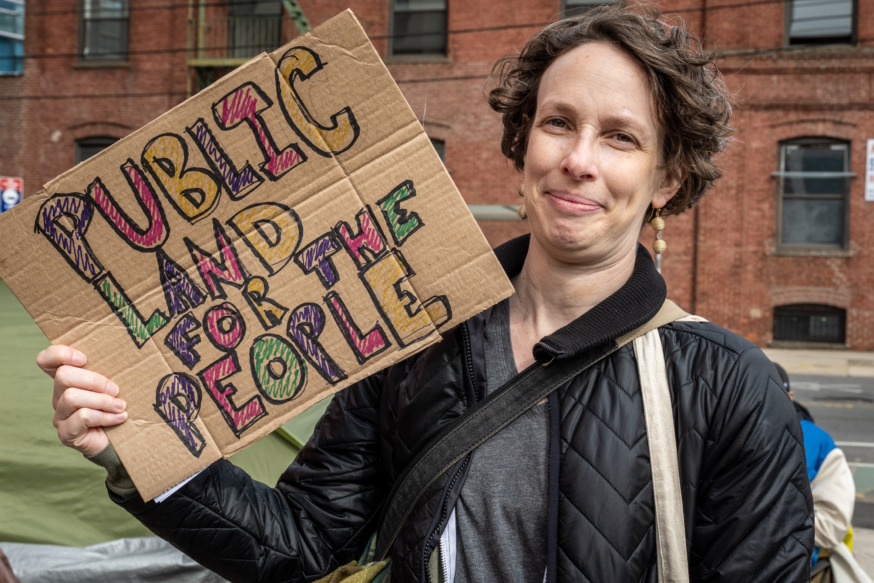 PUBLIC
LAND
FOR THE
PEOPLE